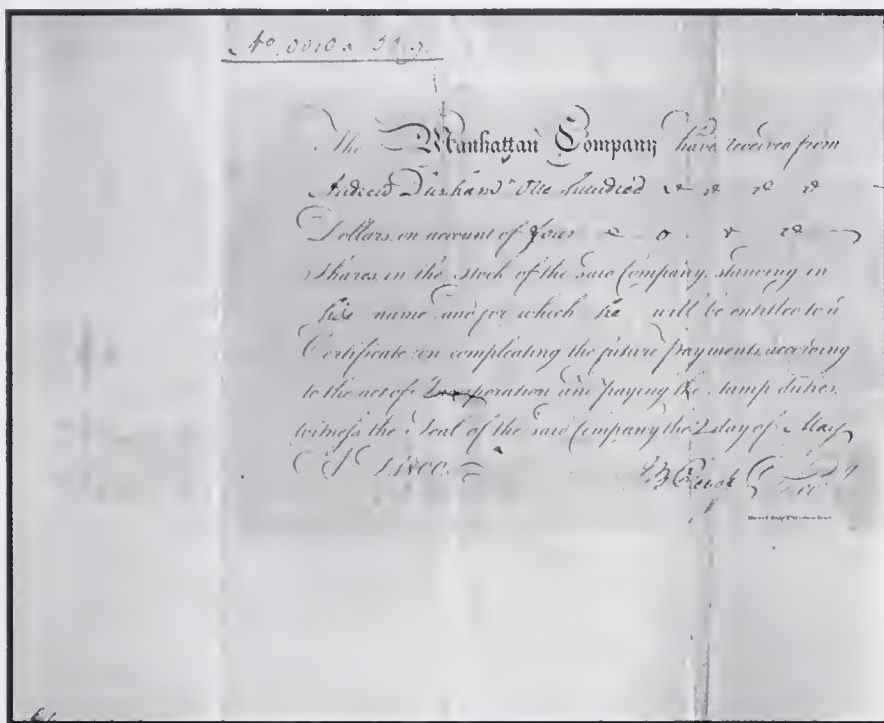 The Manhattan Company have received from
Andrew Durham One hundred
Dollars, on account of four
Shares, in the Stock of the said Company, standing in
his name and for which he will be entitled to a
Certificate on compleating the future payments according
to the act of Incorporation and paying the stamp duties.
witness the Seal of the said Company the 2 day of May
1800.